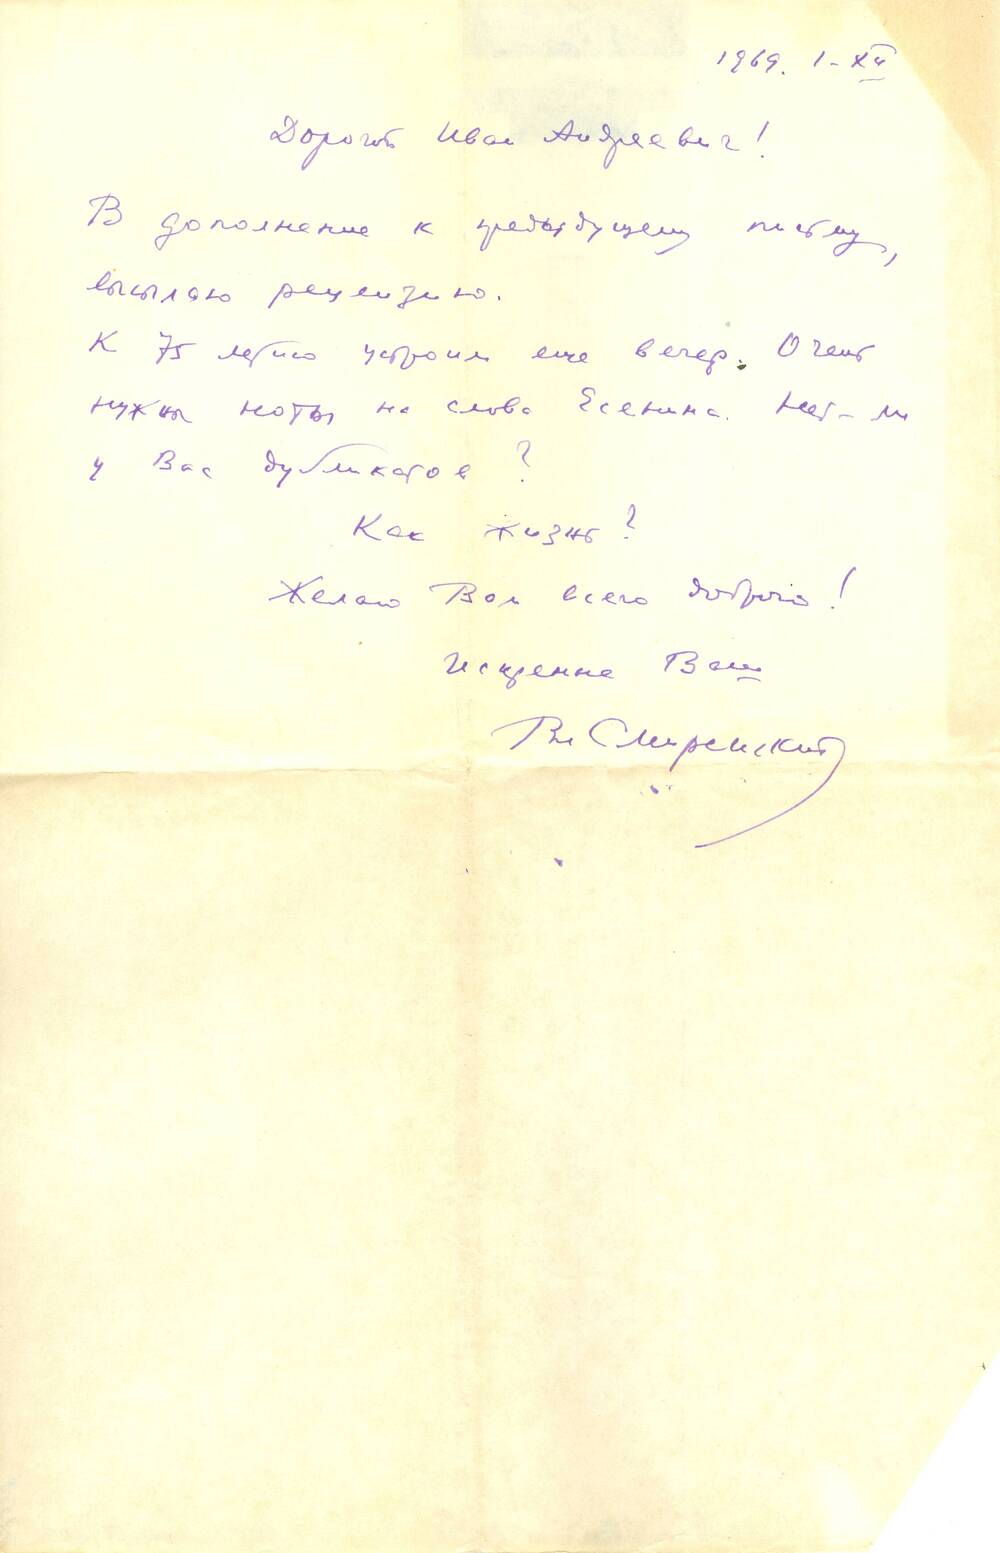 1969. I-XII
Дорогой Иван Андреевич!
В дополнение к предыдущему письму,
высылаю рецензию.
К 75 летию устроим еще вечер. Очень
нужны ноты на слова Есенина. Нет-ли
у Вас дубликатов?
Как жизнь?
Желаю Вам всего доброго!
Искренне Ваш
Вл Смиренский